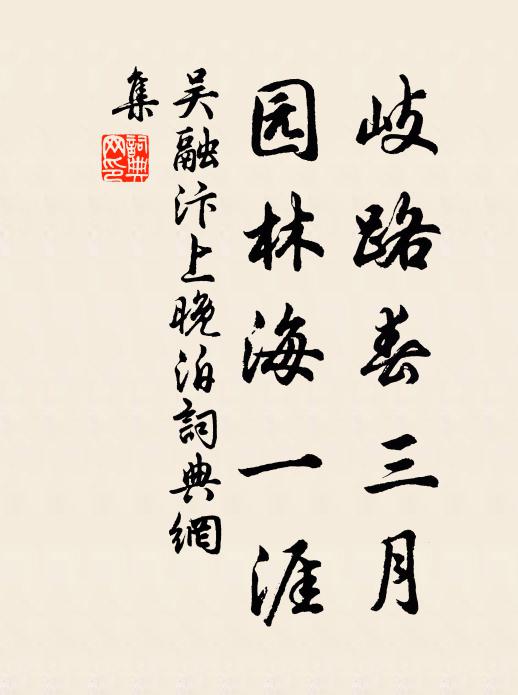 歧路春三月
园林海一涯
吴融汴上晚泊詞典網
集
詞典網印